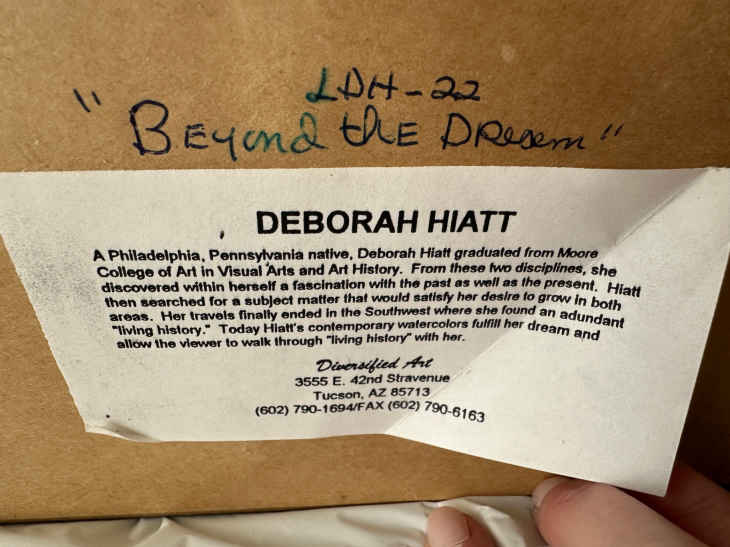 LDH-22
"Beyond the Dream"
DEBORAH HIATT
A Philadelphia, Pennsylvania native, Deborah Hiatt graduated from Moore
College of Art in Visual Arts and Art History. From these two disciplines, she
discovered within herself a fascination with the past as well as the present. Hiatt
then searched for a subject matter that would satisfy her desire to grow in both
areas. Her travels finally ended in the Southwest where she found an adundant
"living history." Today Hiatt's contemporary watercolors fulfill her dream and
allow the viewer to walk through "living history" with her.
Diversified Art
3555 E. 42nd Stravenue
Tucson, AZ 85713
(602) 790-1694/FAX (602) 790-6163